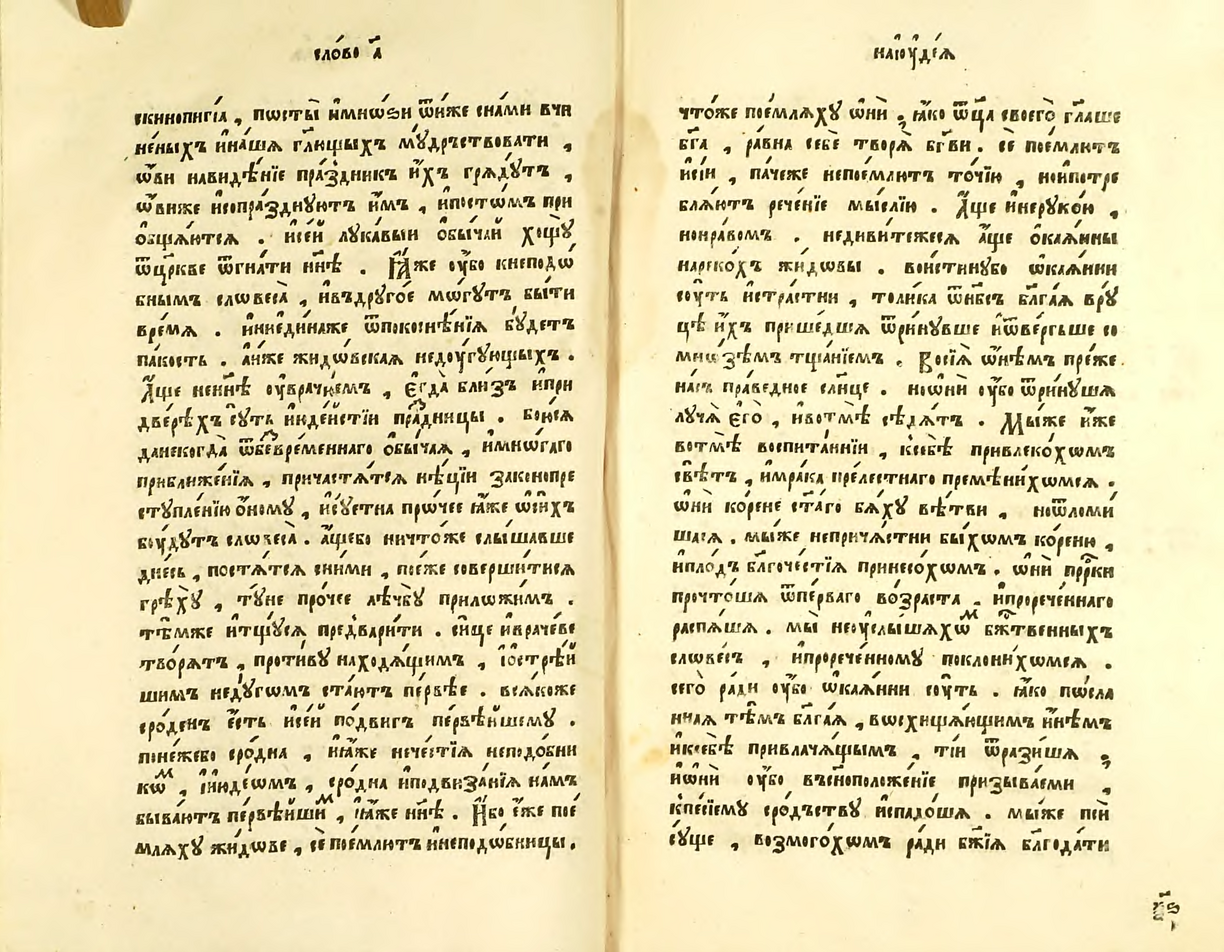 сло́во а҃
скинопигі́а , посты̀ и҆мно́зи ѿни́же сна́ми вчи
не́ныхъ ина́шѧ гл҃щыхъ мꙋ́дръствовати ,
ѡ҆́ви навидѣ́нїе пра́здникъ и҆́хъ грѧдꙋ́тъ ,
ѡ҆́вїиже и҆опра́зднꙋютъ и҆́мъ , ипосто́мъ при
ѻбщаютсѧ . и҆се́й лꙋка́выи ѻбы́чаи хощꙋ̀
ѿцр҃кве ѿгна́ти нн҃ѣ . Ꙗ҆́же оу҆́бо кнеподѡ
бнымъ словеса̀ , ивъдрꙋго́е мо́гꙋтъ бы́ти
вре́мѧ . и҆ниеди́наже ѿпокосне́нїѧ бꙋ́детъ
па́кость . а҆́иже жидо́вскаѧ недꙋ́гꙋющыхъ .
А҆́ще ненн҃ѣ оу҆врачꙋ́емъ , є҆гда̀ бли́зъ ипри
две́рѣхъ сꙋ́ть и҆ꙋде́йстїи пра́здницы . бою́сѧ
данекогда̀ ѿбезвре́меннаго ѻбы́чаѧ , имно́гаго
приближе́нїѧ , причастѧ́тсѧ нѣ́цїи законопре
стꙋпле́нїю ѻ҆́номꙋ , и҆сꙋ́етна про́чее ꙗ҆́же ѡси́хъ
бꙋ́дꙋтъ словеса̀ . а҆́щебо ничто́же слы́шавше
дне́сь , постѧ́тсѧ сни́ми , посе́же соверши́тисѧ
грѣ́хꙋ , тꙋ́не про́чее лѣ́чбꙋ прило́жимъ .
тѣ́мже и҆тщꙋ́сѧ предвари́ти . си́це иврачеве
творѧ́тъ , проти́вꙋ находѧ́щимъ , іо҆стрѣ́й
шимъ недꙋ́гѡмъ ста́ютъ пе́рвѣе . всѧ́коже
сро́денъ є҆́сть и҆се́й по́двигъ пе́рвѣйшемꙋ .
поне́жебо сро́дна , и҆ꙗ҆́же нече́стїѧ неподо́бни
кѡм , и҆іюде́ѡмъ , сро́дна иподвиза́нїѧ на́мъ
быва́ютъ пе́рвѣйшим , и҆ꙗ҆́же нн҃ѣ . И҆́бо є҆́же пое
млѧ́хꙋ жидо́ве , се́ пое́млютъ и҆неподо́бницы .
наїꙋде́ѧ
что́же поемлѧ́хꙋ ѡ҆нѝ ; ꙗ҆́ко ѿц҃а своего̀ гл҃аше
бг҃а , ра́вна себѐ творѧ̀ бг҃ви . се́ пое́млютъ
и҆сі́и , па́чеже непое́млютъ то́чїю , нои҆потре
блѧ́ютъ рече́нїе мы́слїю . А҆́ще и҆нерꙋко́ю ,
нонра́вомъ . недиви́тежесѧ а҆́ще ѻкаѧ́нны
нареко́хъ жидо́вы . вои́стинꙋбо ѡкаѧ́нни
сꙋ́ть и҆стра́стни , толи́ка ѿнб҃съ бл҃га́ѧ врꙋ
цѣ̀ и҆́хъ прише́дшѧ ѿри́нꙋвше и҆ѿве́ргъше со
мно́зѣмъ тща́нїемъ . Восїѧ̀ ѡ҆нѣ́мъ пре́же
на́съ пра́ведное сл҃нце . ноѡ҆нѝ оу҆́бо ѿри́нꙋшѧ
лꙋчѧ̀ є҆го̀ , ивотмѣ̀ сѣдѧ́тъ . Мы́же и҆́же
вотмѣ̀ воспита́ннїи , ксебѣ̀ привлеко́хомъ
свѣ́тъ , имра́ка преле́стнаго премѣни́хомсѧ .
ѡ҆нѝ ко́рене ст҃а́го бѧ́хꙋ вѣ́тви , ноѿломи
шасѧ . мы́же неприча́стни бы́хомъ ко́реню ,
и҆пло́дъ бл҃гоче́стїѧ принесо́хомъ . ѡ҆нѝ прⷪ҇рки
прочто́шѧ ѿпе́рваго во́зраста . и҆прорече́ннаго
распѧ́шѧ . мы̀ неꙋслы́шѧхѡм бж҃твенныхъ
слове́съ , ипрорече́нномꙋ поклони́хомсѧ .
сего̀ ра́ди оу҆́бо ѡкаѧ́нни сꙋ́ть . ꙗ҆́ко по́сла
ннаѧ тѣ́мъ бл҃га́ѧ , восхищѧ́ющимъ и҆нѣ́мъ
и҆ксебѣ̀ привлачѧ́щымъ , ті́и ѿрази́шѧ ;
и҆ѡ҆нѝ оу҆́бо въсн҃оположе́нїе призыва́еми ,
кпе́сїемꙋ сро́дствꙋ и҆спадо́шѧ . мы́же пси́
сꙋ́ще , возмого́хомъ ра́ди бж҃їѧ бл҃года́ти